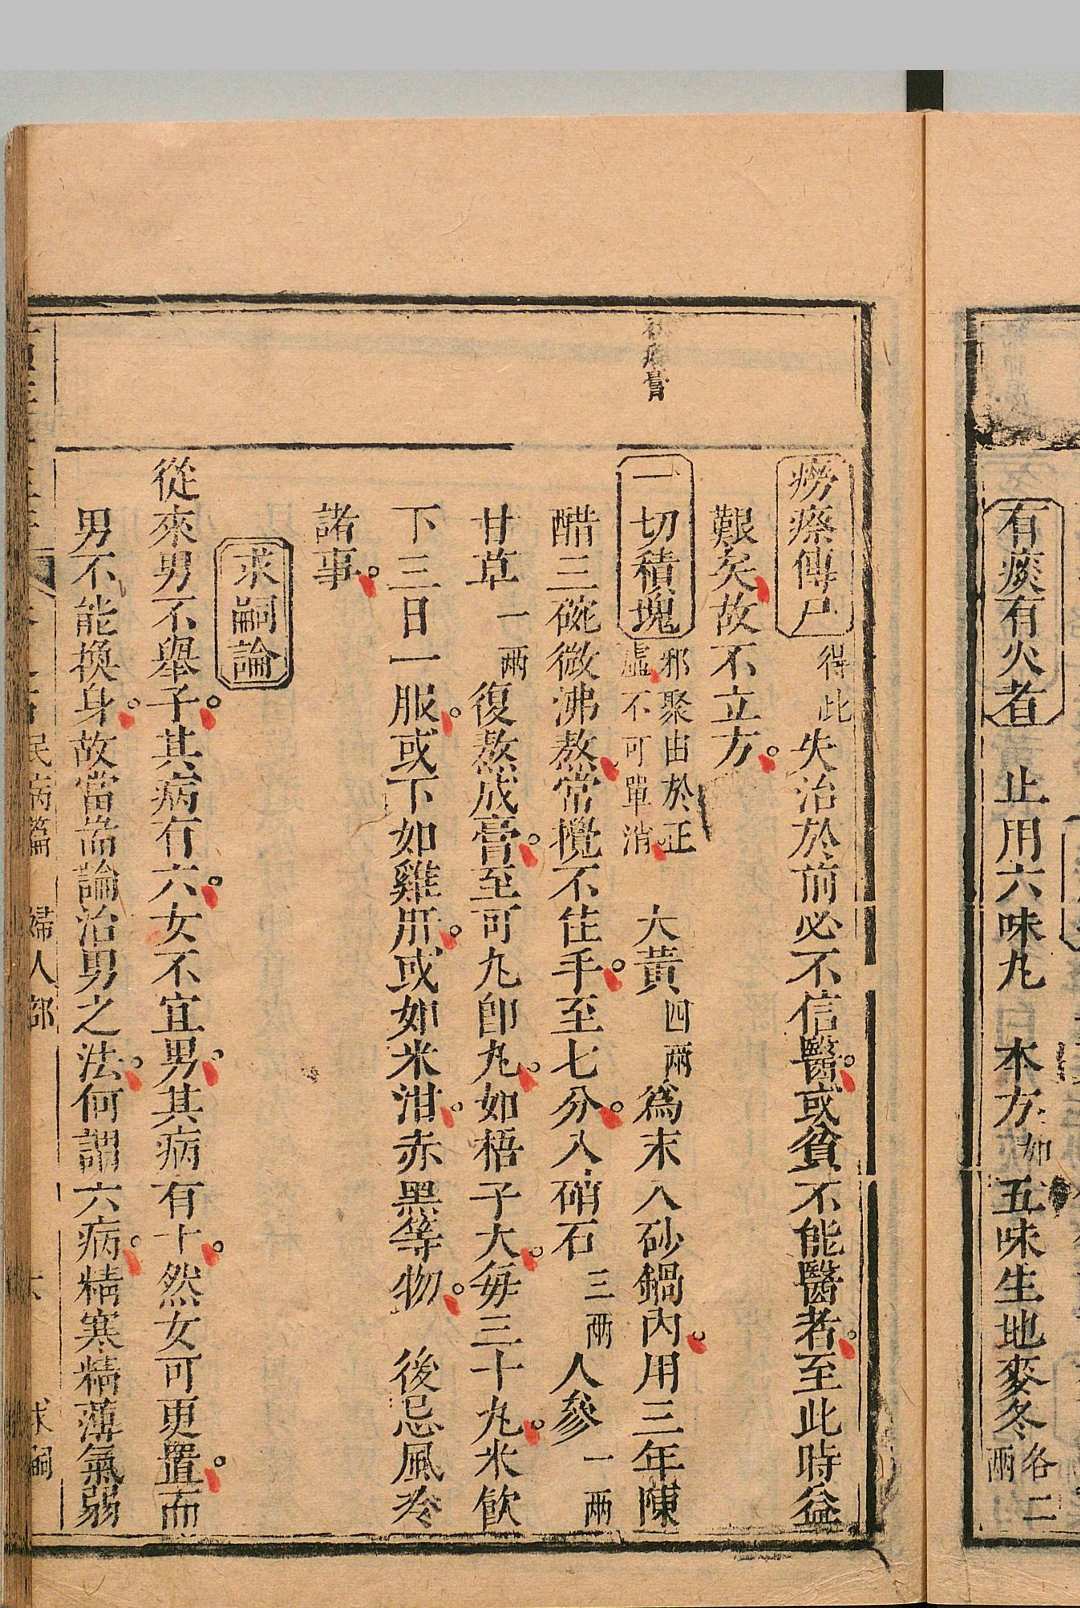 有痰有火者 止用六味丸 本方如五味生地麥冬各二兩
癆瘵傳尸 得此失治於前必不信醫或貧不能醫者至此時益
艱矣故不立方
一切積塊 邪聚由於正虛不可單消 大黃四兩為末入砂鍋內用三年陳
醋三碗微沸熬常攪不住手至七分入硝石三兩人參一兩
甘草一兩復熬成膏至可丸卽丸如梧子大每三十丸米飲
下三日一服或下如雞肝或如米泔赤黑等物 後忌風冷
諸事
求嗣論
從來男不舉子其病有六女不宜男其病有十然女可更置而
男不能換身故當詳論治男之法何謂六病精寒精薄氣弱
民病篇 婦人部 六 求嗣